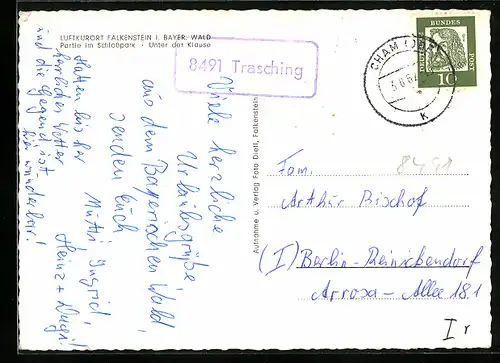 LUFTKURORT FALKENSTEIN I. BAYER. WALD
Partie im Schloßpark - Unter der Klause
8491 Trasching
CHAM (OBERPF)
K
DEUTSCHE
BUNDES
POST
10
Viele herzliche
Urlaubsgrüße,
aus dem Bayerischen Wald,
senden Euch
Mutti, Ingrid,
Heinz +
Hatten bis her
herrliches Wetter
und die Gegend ist
hier wunderbar!
Aufnahme u. Verlag Foto Dietl, Falkenstein
8491
Fam.
Arthur Bischof
(I) Berlin-Reinickendorf
Arrosa-Allee 181
I r